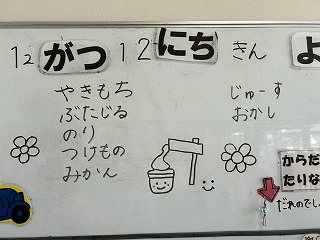 12 がつ 12 にち きん よ
やきもち
ぶたじる
のり
つけもの
みかん
じゅーす
おかし
からだ
たりな
だれのでしょ